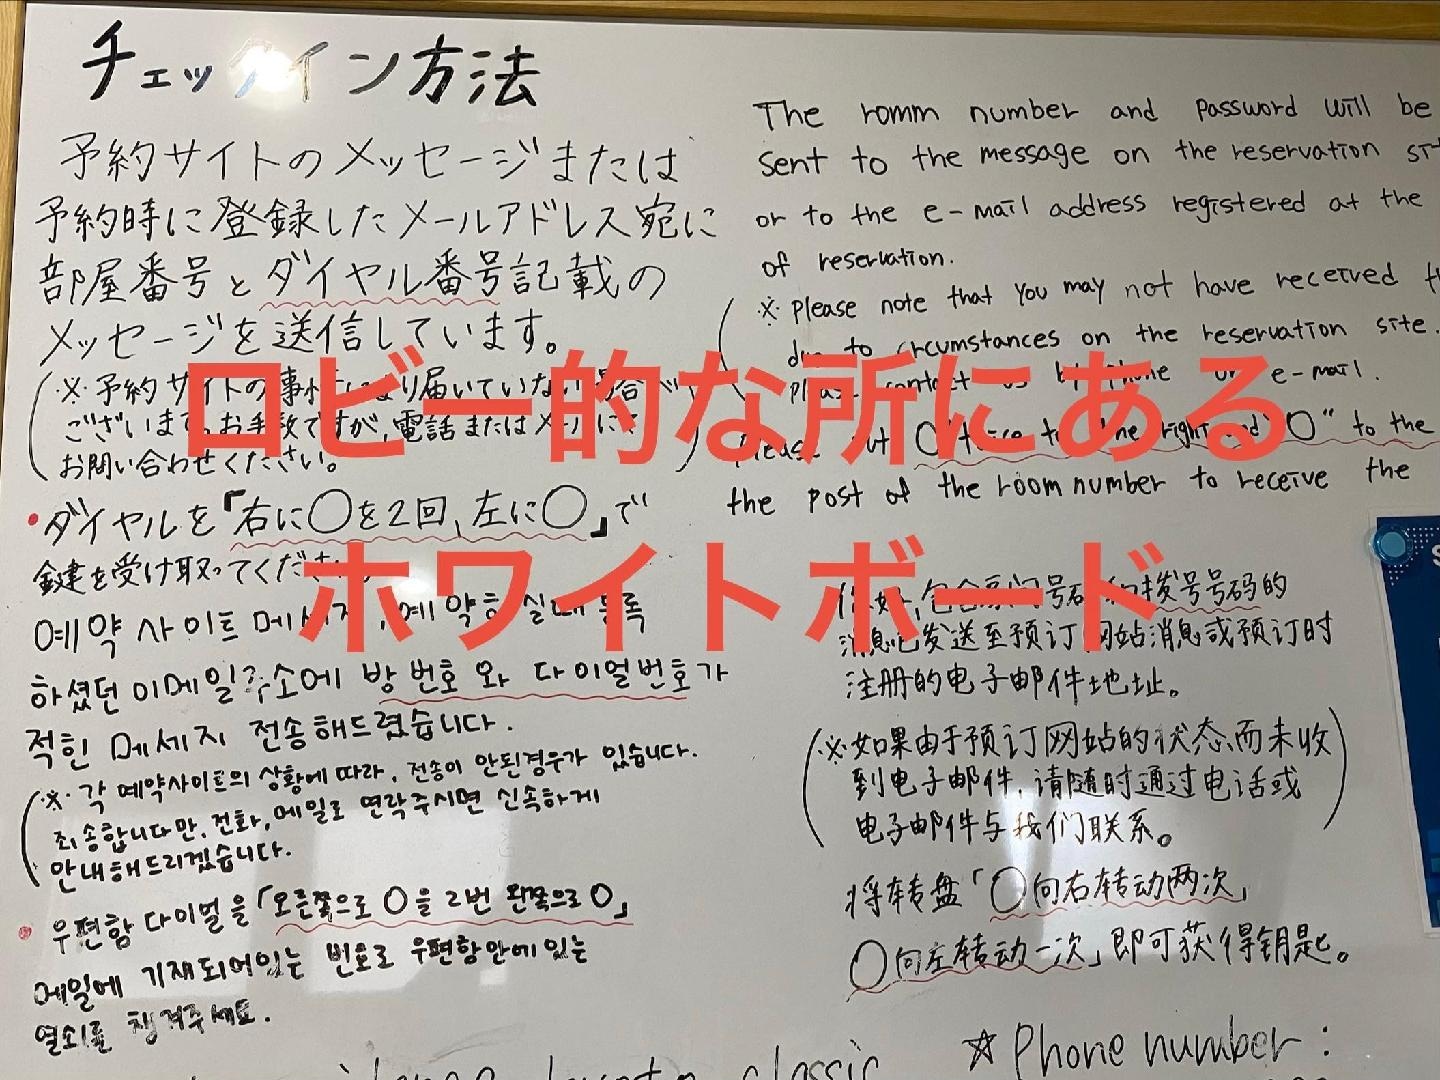 チェックイン方法
予約サイトのメッセージまたは
予約時に登録したメールアドレス宛に
部屋番号とダイヤル番号記載の
メッセージを送信しています。
(※予約サイトの事情により届いていない場合が
ございます。お手数ですが、電話またはメールにて
お問い合わせください。)
•ダイヤルを「右に〇を2回、左に〇」で
鍵を受け取ってください。
예약 사이트 메세지, 예약하실때 등록
하셨던 이메일주소에 방 번호와 다이얼번호가
적힌 메세지 전송해드렸습니다.
(※각 예약사이트의 상황에 따라, 전송이 안된경우가 있습니다.
죄송합니다만, 전화, 메일로 연락주시면 신속하게
안내해드리겠습니다.)
•우편함 다이얼을「오른쪽으로 〇을 2번 왼쪽으로 〇」
메일에 기재되어있는 번호로 우편함안에 있는
열쇠를 챙겨주세요.
The romm number and password will be
sent to the message on the reservation
or to the e-mail address registered at the
of reservation.
(※please note that you may not have received
due to circumstances on the reservation site.
please contact us by phone or e-mail.
please 〇 twice to the right and "〇" to the
the post of the room number to receive the
包含房门号码和拨号号码的
消息已发送至预订网站消息或预订时
注册的电子邮件地址。
(※如果由于预订网站的状态,而未收
到电子邮件,请随时通过电话或
电子邮件与我们联系。)
将转盘「〇向右转动两次」
〇向左转动一次」即可获得钥匙。
☆Phone number:
classic
ロビー的な所にある
ホワイトボード